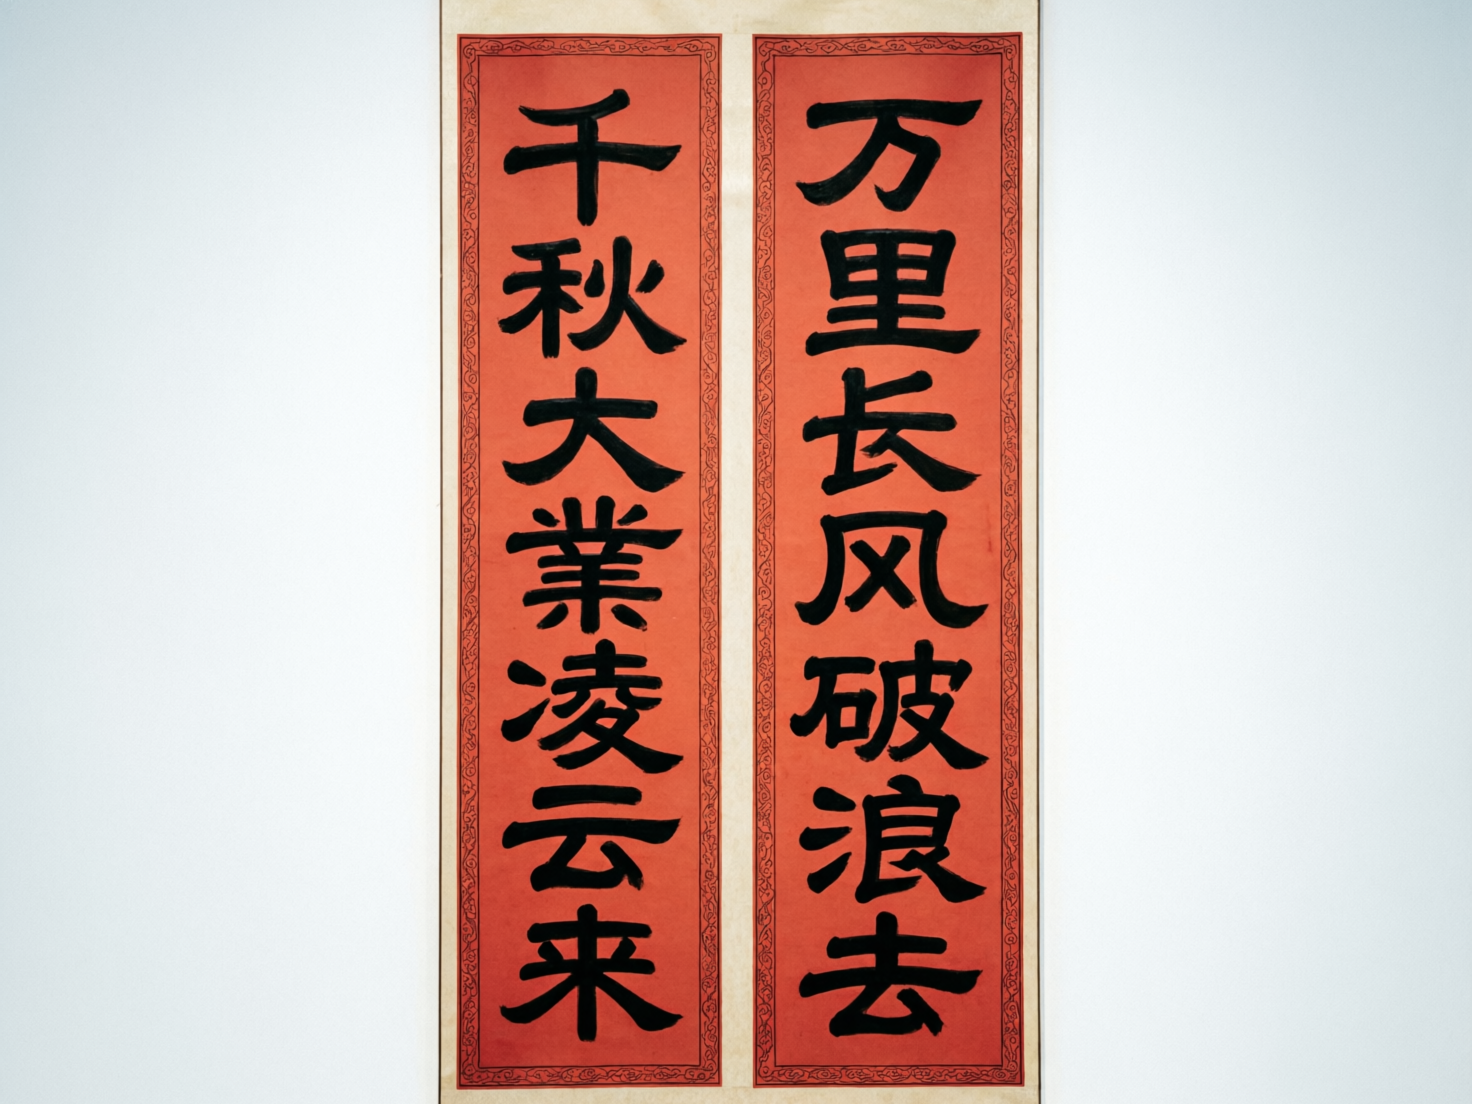 万里长风破浪去
千秋大業凌云来